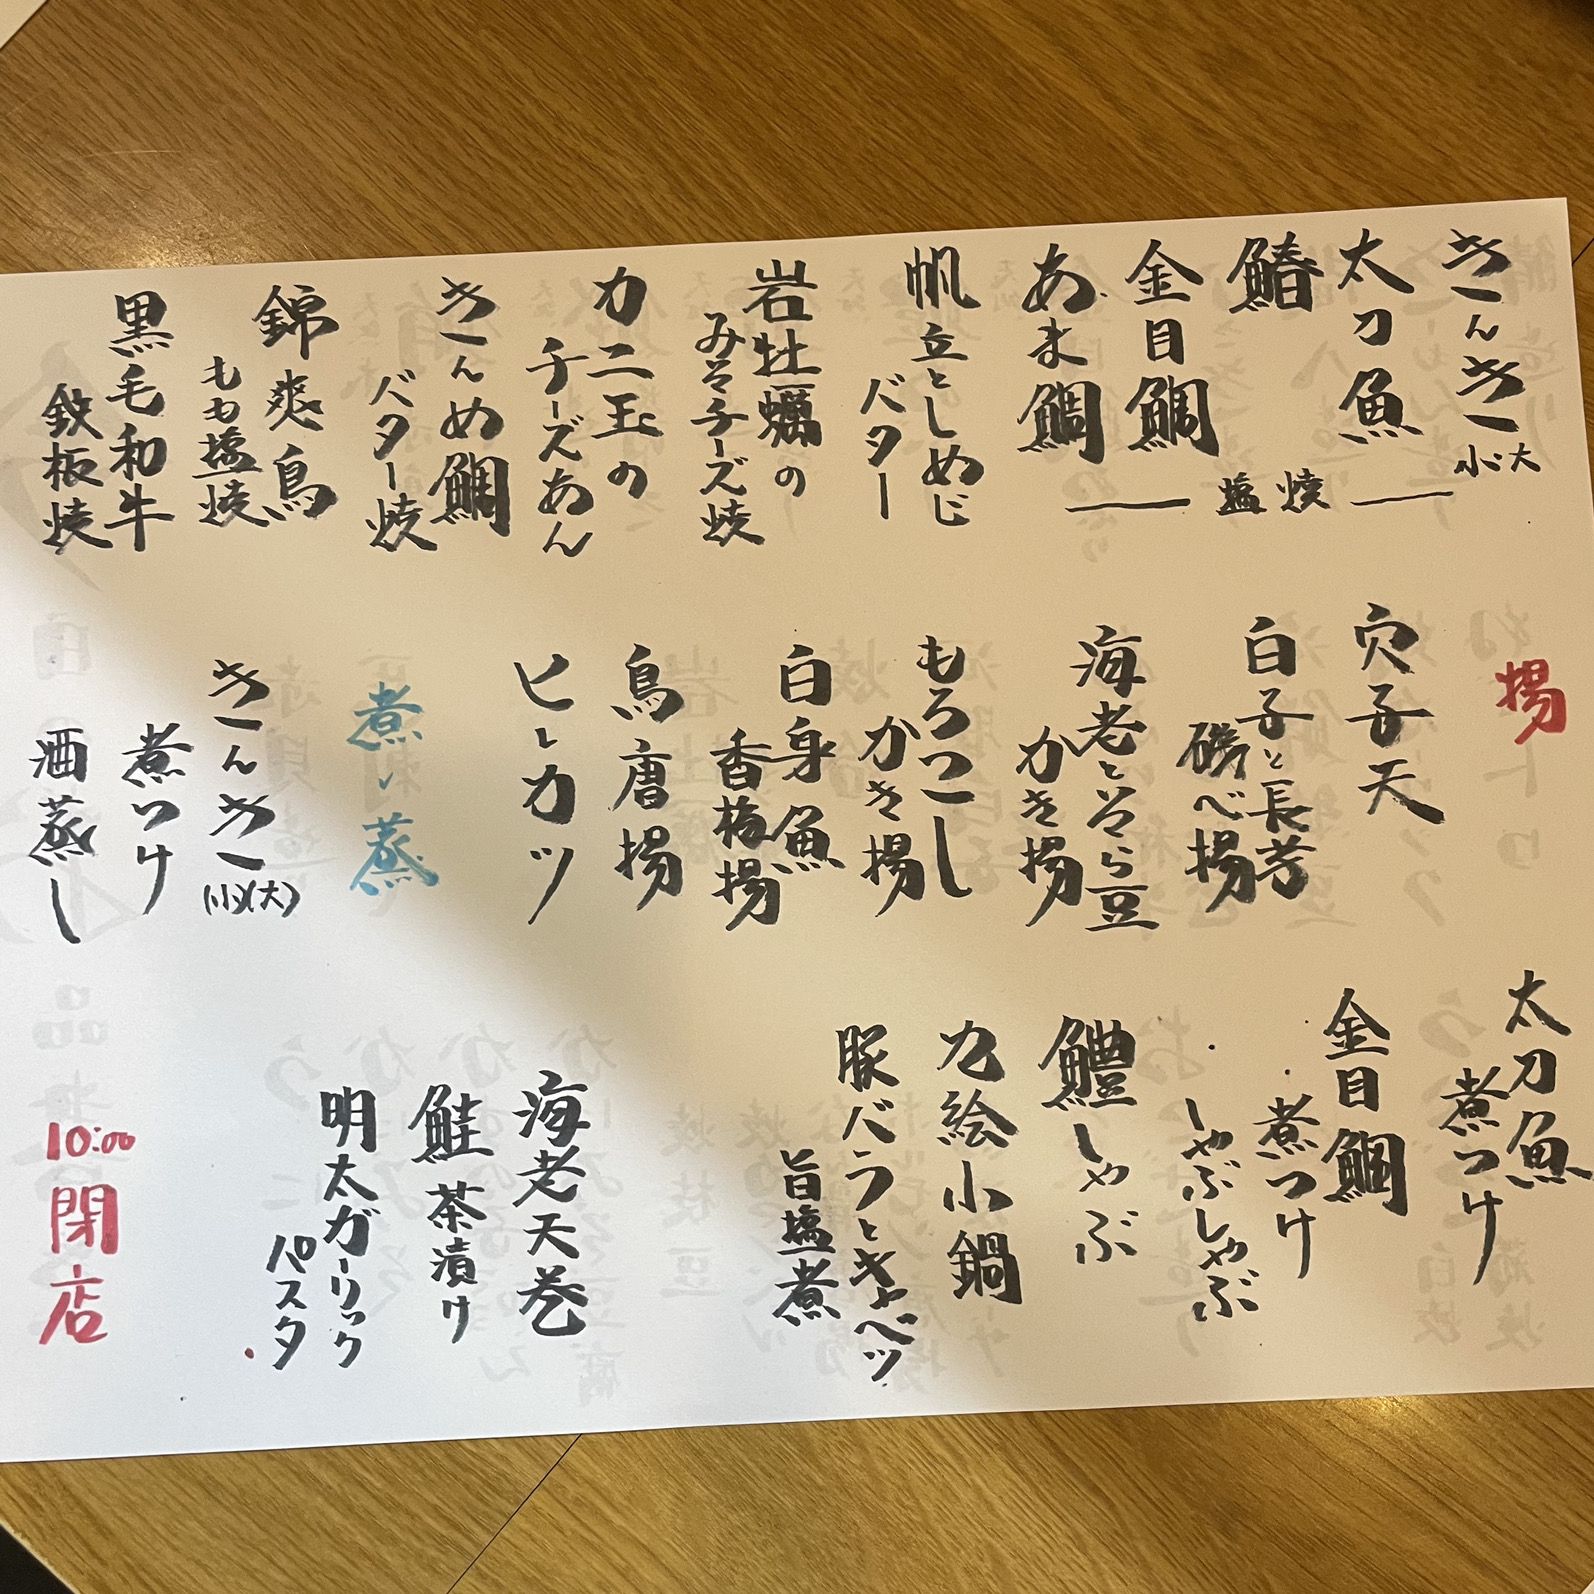 きんき 大小
太刀魚
鰆
金目鯛
あま鯛
塩焼
帆立としめじ
バター
岩牡蠣の
みそチーズ焼
カニ玉の
チーズあん
きんめ鯛
バター焼
錦爽鳥
もも塩焼
黒毛和牛
鉄板焼
揚
穴子天
白子と長芋
磯べ揚
海老とそら豆
かき揚
もろこし
かき揚
白身魚
香梅揚
鳥唐揚
ヒレカツ
煮・蒸
きんき(大)(小)
煮つけ
酒蒸し
太刀魚
煮つけ
金目鯛
煮つけ
しゃぶしゃぶ
鱧しゃぶ
九絵小鍋
豚バラとキャベツ
旨塩煮
海老天巻
鮭茶漬け
明太ガーリック
パスタ
10:00
閉店